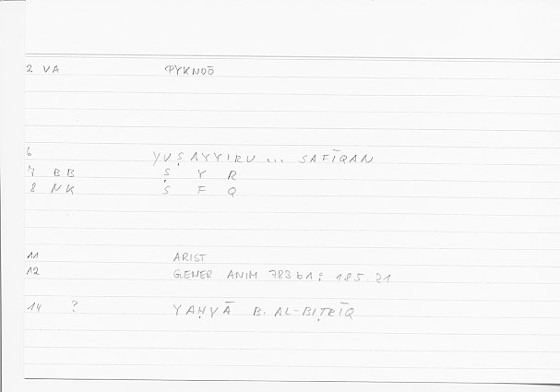 2 VA PYKNOŌ
6 YUṢAYYIRU ... SAFĪQAN
7 BB Ṣ Y R
8 NK S F Q
11 ARIST
12 GENER ANIM 783b1: 185.21
14 ? YAḤYĀ B. AL-BIṬRĪQ